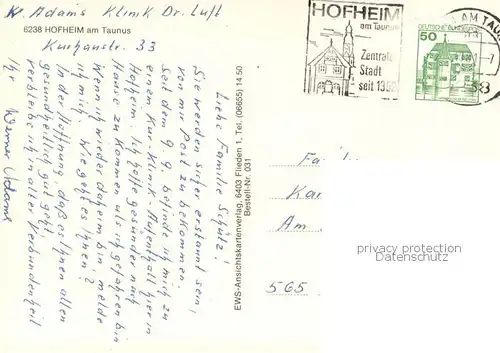 W. Adams Klinik Dr. Luft
6238 HOFHEIM am Taunus
Kurhausstr. 33
Liebe Familie Schütz!
Sie werden sicher erstaunt sein,
von mir Post zu bekommen.
Seit dem 9. 9. befindt ich mich zu
einem Kur-Klinik-Aufenthalt hier in
Hofheim. Ich hoffe gesünder nach
Hause zu kommen als ich gefahren bin
Wenn ich wieder daheim bin melde
ich mich. Wie geht es Ihnen?
In der Hoffnung daß es Ihnen allen
gesundheitlich gut geht,
verbleibe ich in alter Verbundenheit
Ihr Werner Adams
EWS-Ansichtskartenverlag, 6403 Flieden 1, Tel. (06655) 14 50
Bestell-Nr. 031
HOFHEIM
am Taunus
Zentrale
Stadt
seit 1352
AM TAUN
DEUTSCHE BUNDESPOST
50
Fa
Kar
Am
565
privacy protection
watermark